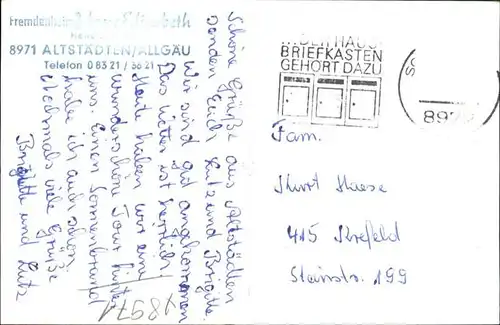 Fremdenheim Haus Elisabeth
8971 ALTSTÄDTEN/ALLGÄU
Telefon 0 83 21 / 36 21
Schöne Grüße aus Altstädten
senden Euch Lutz und Brigitte.
Wir sind gut angekommen
Das Wetter ist herrlich.
Heute haben wir eine
wunderschön Tour hinter
uns. Einen Sonnenbrand
habe ich auch schon.
Nochmals viele Grüße
Brigitte und Lutz
18971
BRIEFKASTEN
GEHÖRT DAZU
897
Fam.
Kurt Haese
415 Krefeld
199